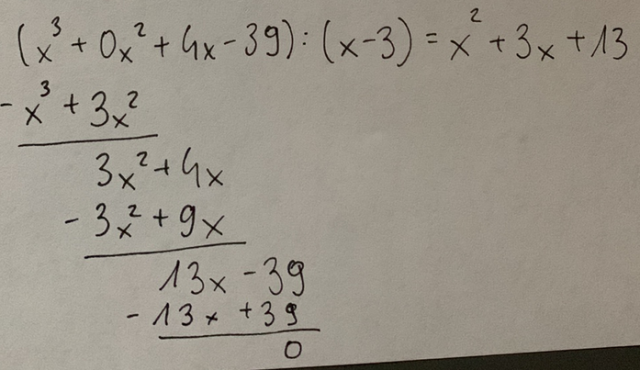 (x³ + 0x² + 4x - 39) : (x - 3) = x² + 3x + 13
- x³ + 3x²
3x² + 4x
- 3x² + 9x
13x - 39
- 13x + 39
0